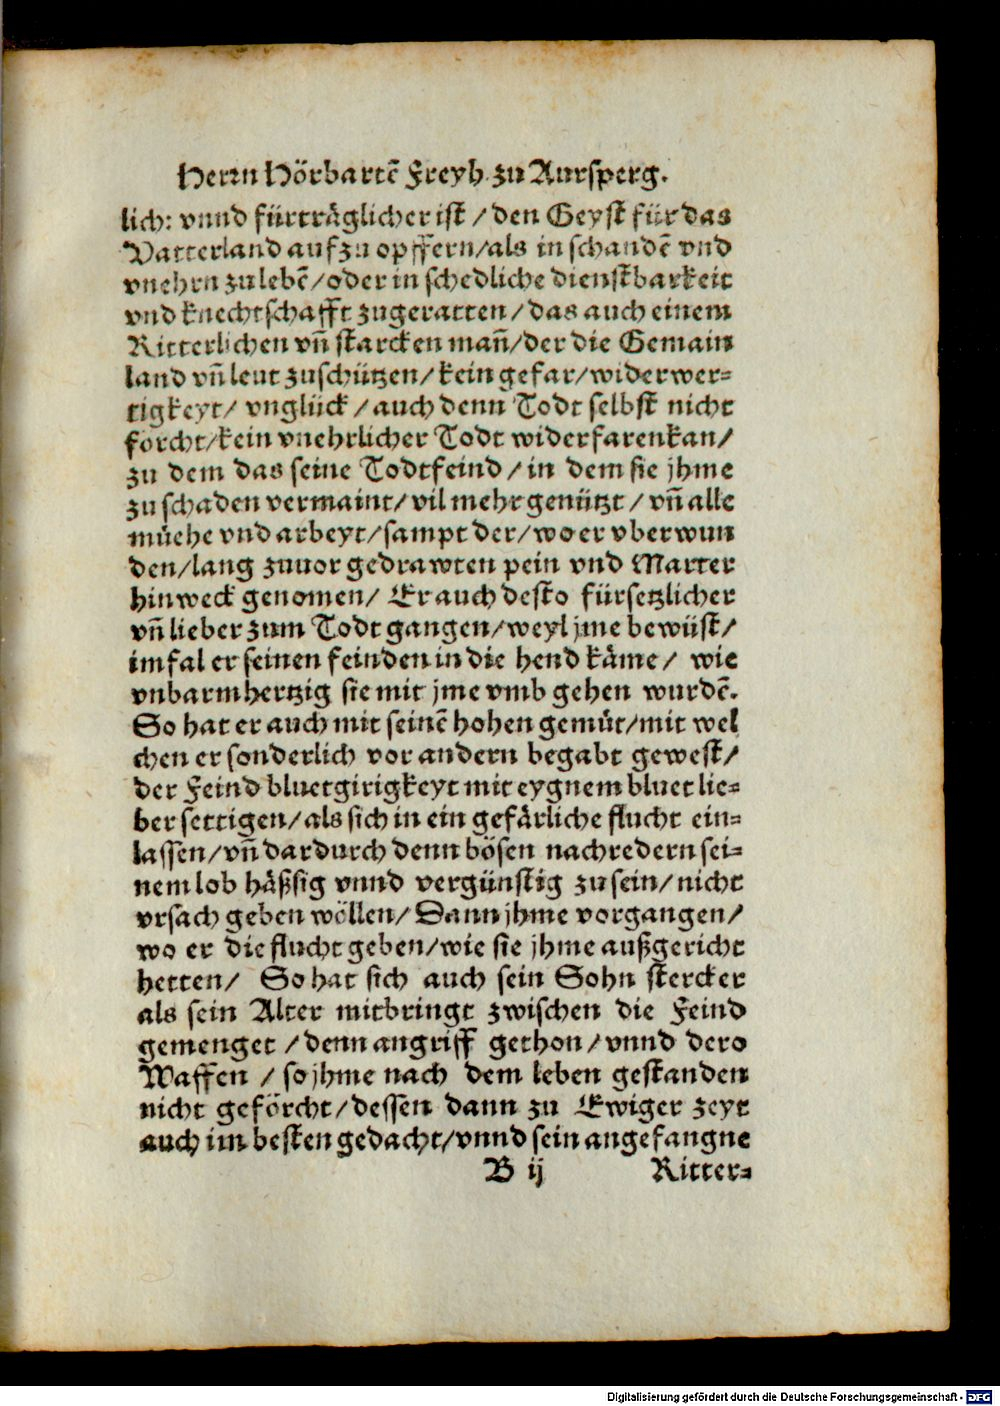 Herrn Hörbartē Freyh. zu Aursperg.
lich: vnnd fürträglicher ist / den Geyst für das
Vatterland aufzu opffern/als in schandē vnd
vnehrn zulebē/oder in schedliche dienstbarkeit
vnd knechtschafft zugeratten/das auch einem
Ritterlichen vñ starcken mañ/der die Gemain
land vñ leut zuschützen/kein gefar/widerwer-
tigkeyt/ vnglück / auch denn Todt selbst nicht
förcht/kein vnehrlicher Todt widerfarenkan/
zu dem das seine Todtfeind / in dem sie jhme
zu schaden vermaint/vil mehr genützt / vñ alle
müehe vnd arbeyt/sampt der/wo er vberwun
den/lang zuuor gedrawten pein vnd Marter
hinweck genomen/ Er auch desto fürsetzlicher
vñ lieber zum Todt gangen/weyl jme bewüst/
im fal er seinen feinden in die hend käme/ wie
vnbarmhertzig sie mit jme vmb gehen wurdē.
So hat er auch mit seinē hohen gemüt/mit wel
chen er sonderlich vor andern begabt gewest/
der Feind bluetgirigkeyt mit eygnem bluet lie-
ber settigen/als sich in ein gefärliche flucht ein-
lassen/vñ dardurch denn bösen nachredern sei-
nem lob häßsig vnnd vergünstig zu sein/nicht
vrsach geben wöllen/Dann jhme vorgangen/
wo er die flucht geben/wie sie jhme außgericht
hetten/ So hat sich auch sein Sohn stercker
als sein Alter mitbringt zwischen die Feind
gemenget /denn angriff gethon/vnnd dero
Waffen / so jhme nach dem leben gestanden
nicht geförcht/dessen dann zu Ewiger zeyt
auch im besten gedacht/vnnd sein angefangne
B ij Ritter-
Digitalisierung gefördert durch die Deutsche Forschungsgemeinschaft - DFG